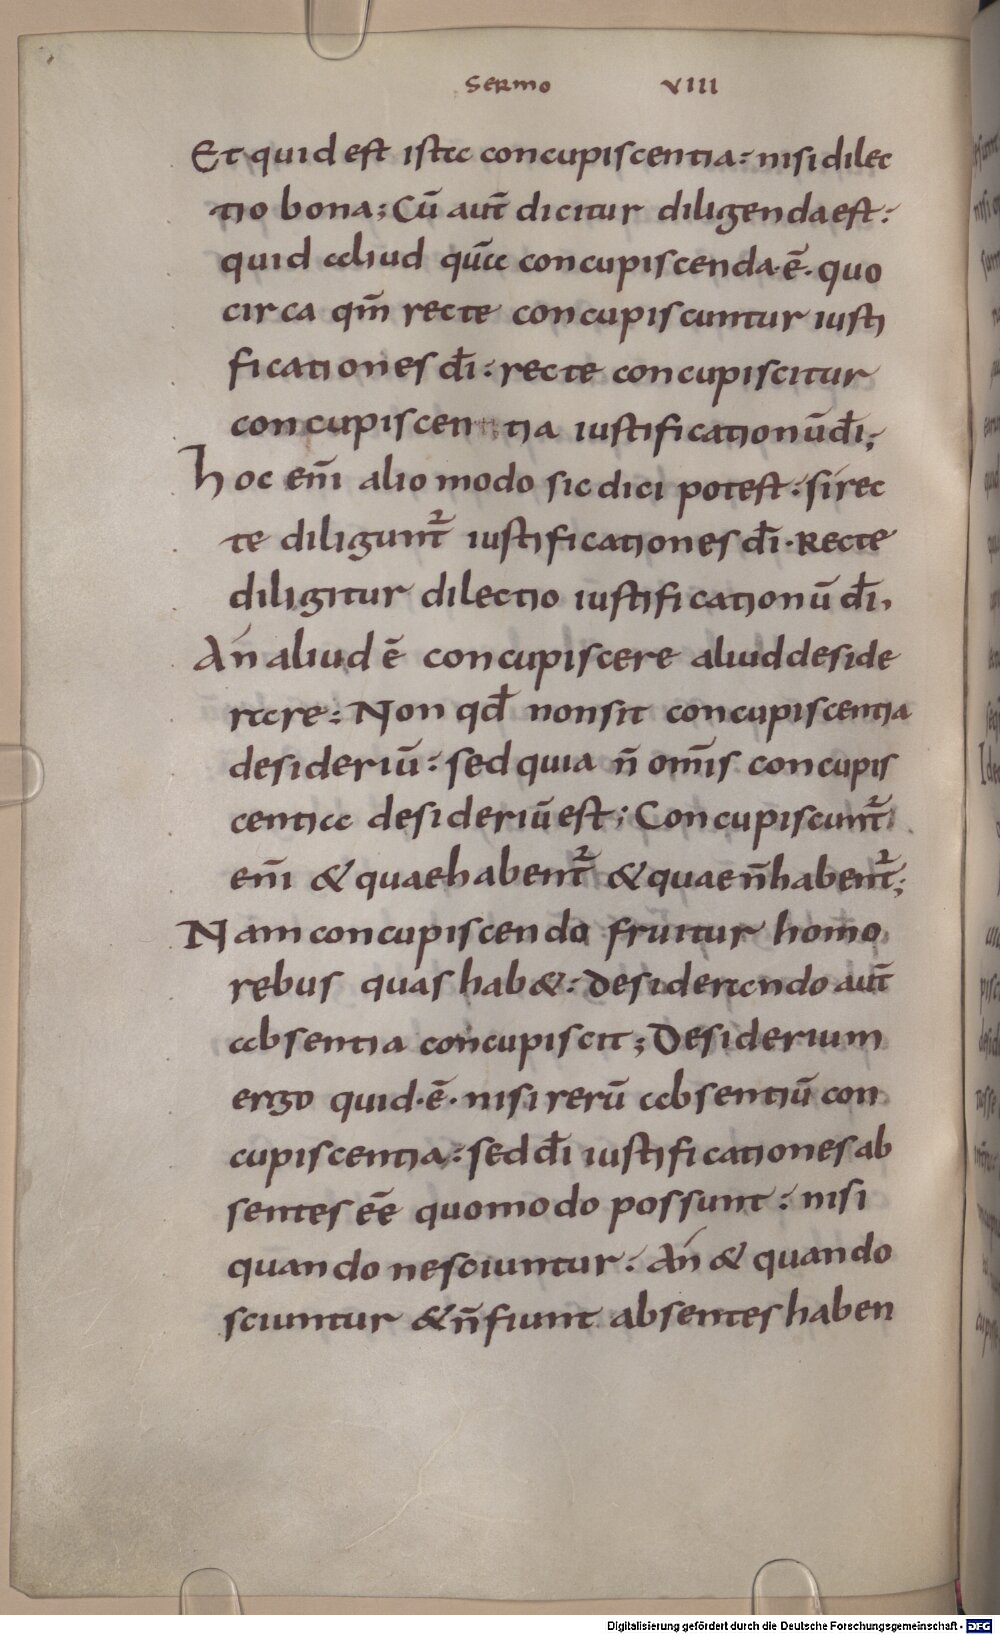 Sermo VIII
Et quid est ista concupiscentia: nisi dilec
tio bona; Cū aūt dicitur diligenda est:
quid aliud quā concupiscenda·ē· quo
circa qm̄ recte concupiscuntur iusti
ficationes dī: recte concupiscitur
concupiscen tia iustificationū dī;
hoc enī alio modo sic dici potest: si rec
te diligunt̄ iustificationes dī· Recte
diligitur dilectio iustificationū dī,
An aliud ē concupiscere aliud deside
rare: Non qd̄ non sit concupiscentia
desideriū: sed quia n̄ om̄is concupis
centia desideriū est; Concupiscunt̄
enī & quae habent̄ & quae n̄ habent̄;
Nam concupiscendo fruitur homo
rebus quas hab&: desiderando aūt
absentia concupiscit; Desiderium
ergo quid·ē· nisi rerū absentiū con
cupiscentia: sed dī iustificationes ab
sentes eē quomodo possunt: nisi
quando nesciuntur: An & quando
sciuntur & n̄ fiunt absentes haben
Digitalisierung gefördert durch die Deutsche Forschungsgemeinschaft - DFG